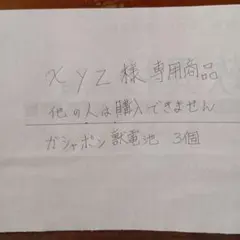 xyz様専用商品
他の人は購入できません
ガシャポン獣電池 3個